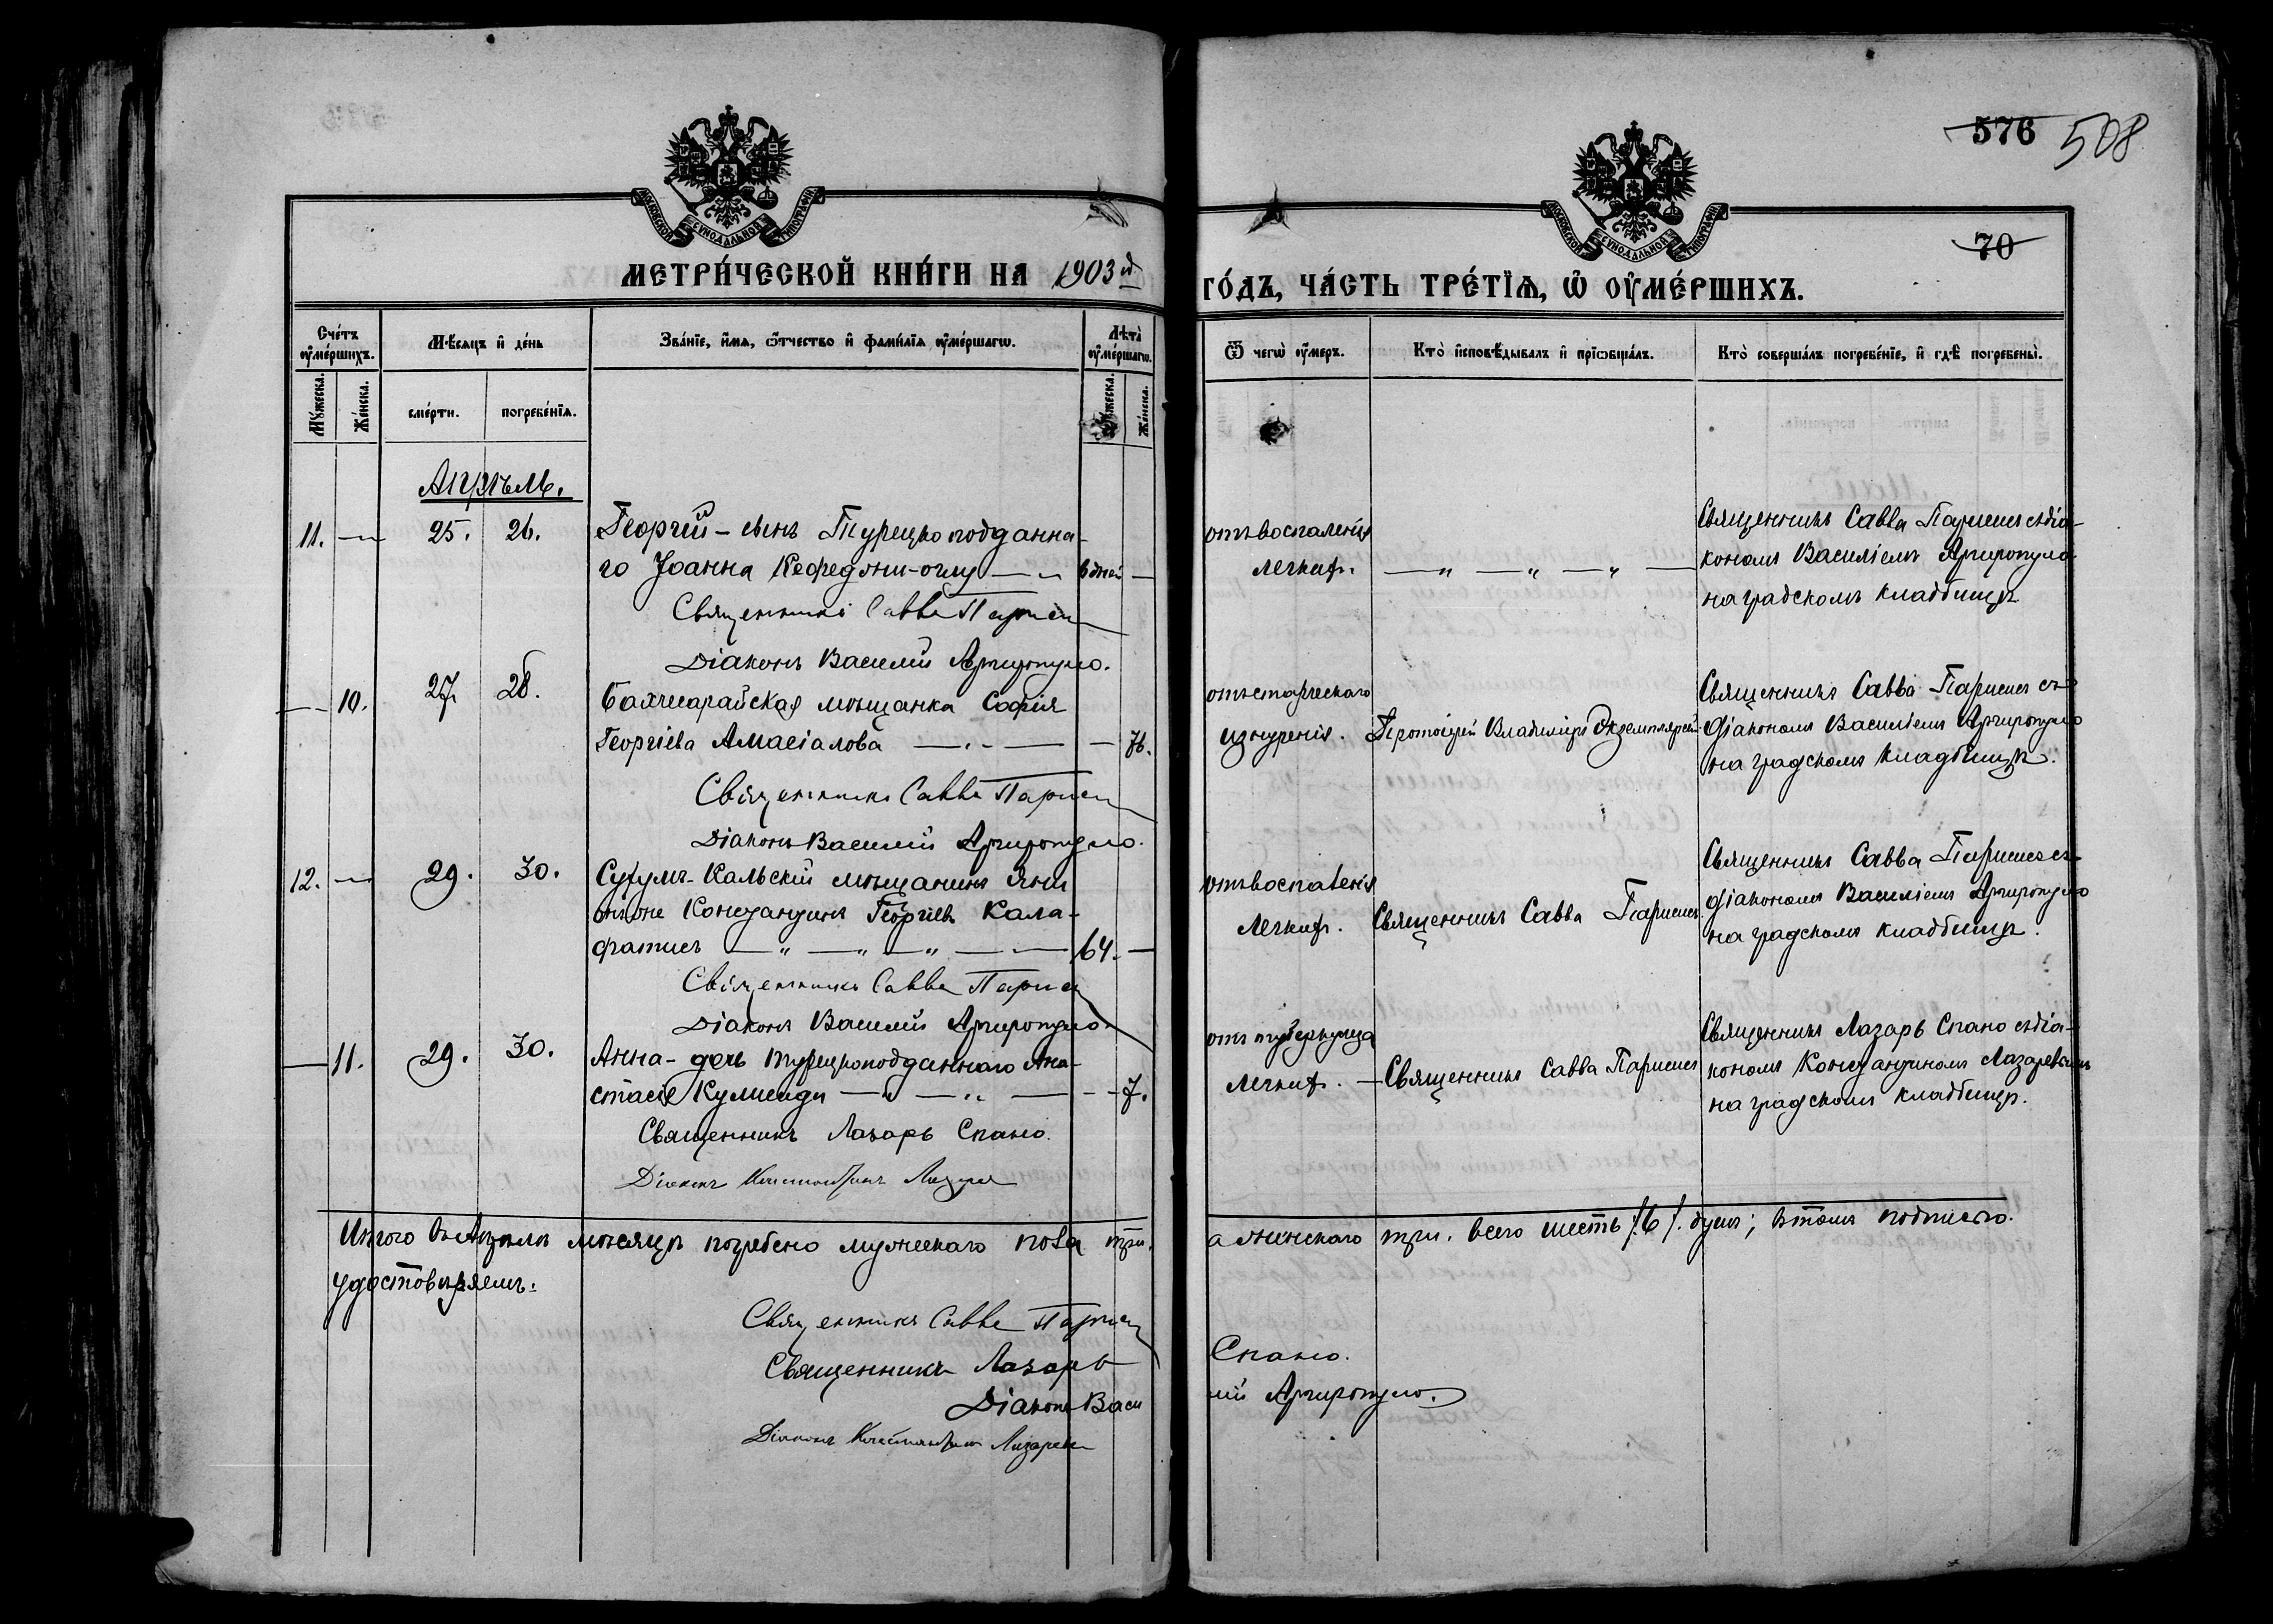 576 508
МОСКОВСКОЙ СѴНОДАЛЬНОЙ ТИПОГРАФІИ
МОСКОВСКОЙ СѴНОДАЛЬНОЙ ТИПОГРАФІИ
70
МЕТРИ́ЧЕСКОЙ КНИ́ГИ НА 1903й
ГО́ДЪ, ЧА́СТЬ ТРЕ́ТЇѦ, Ѡ҆ ОУ҆МЕ́РШИХЪ.
Сче́тъ оу҆ме́ршихъ.
Мѣ́сяцъ и҆ де́нь
Зва́нїе, и҆́мѧ, ѻ҆́тчество и҆ фами́лїѧ оу҆ме́ршагѡ.
Лѣ́та оу҆ме́ршагѡ.
Ѿ чегѡ̀ оу҆́меръ.
Кто̀ и҆сповѣ́дывалъ и҆ прїѡбща́лъ.
Кто̀ соверша́лъ погребе́нїе, и҆ гдѣ̀ погребены̀.
Мꙋ́жеска.
Же́нска.
сме́рти.
погребе́нїѧ.
Мꙋ́жеска.
Же́нска.
Апрѣль.
11. — 25. 26. Георгій – сынъ Турецкоподданна-
го Іоанна Кефедзни-оглу — 6 дней —
Священникъ Савва Париси
Діаконъ Василій Аргиропуло.
отъ воспаленія
легкихъ.
— „ — „ — „ —
Священникъ Савва Парисис съ діа-
кономъ Василіемъ Аргиропуло
на градскомъ кладбищѣ
— 10. 27. 28. Бахчисарайская мѣщанка Софія
Георгіева Амасіалова — — 76.
Священникъ Савва Париси
Діаконъ Василій Аргиропуло.
отъ старческаго
изнуренія.
Протоіерей Владиміръ Экземплярскій
Священникъ Савва Парисис съ
діакономъ Василіемъ Аргиропуло
на градскомъ кладбищѣ.
12. — 29. 30. Сухумъ-Кальскій мѣщанинъ Яни
онъ же Константинъ Георгіевъ Кала-
фатисъ — „ — „ — „ — 64. —
Священникъ Савва Париси
Діаконъ Василій Аргиропуло.
отъ воспаленія
легкихъ.
Священникъ Савва Парисис
Священникъ Савва Парисис съ
діакономъ Василіемъ Аргиропуло
на градскомъ кладбищѣ.
— 11. 29. 30. Анна – дочь турецкоподданнаго Ана-
стасіе Кулисиди — „ — „ — 7.
Священникъ Лазарь Спано.
Діаконъ Константинъ Лазаре
отъ туберкулеза
легкихъ.
— Священникъ Савва Парисис
Священникъ Лазарь Спано съ діа-
кономъ Константиномъ Лазаревымъ
на градскомъ кладбищѣ.
Итого въ Апрѣлѣ мѣсяцѣ погребено мужескаго пола три.
а женскаго три. всего шесть /6/. душъ; въ томъ подписью.
удостовѣряемъ:
Священникъ Савва Париси
Священникъ Лазарь Спано.
Діаконъ Василій Аргиропуло.
Діаконъ Константинъ Лазаревъ